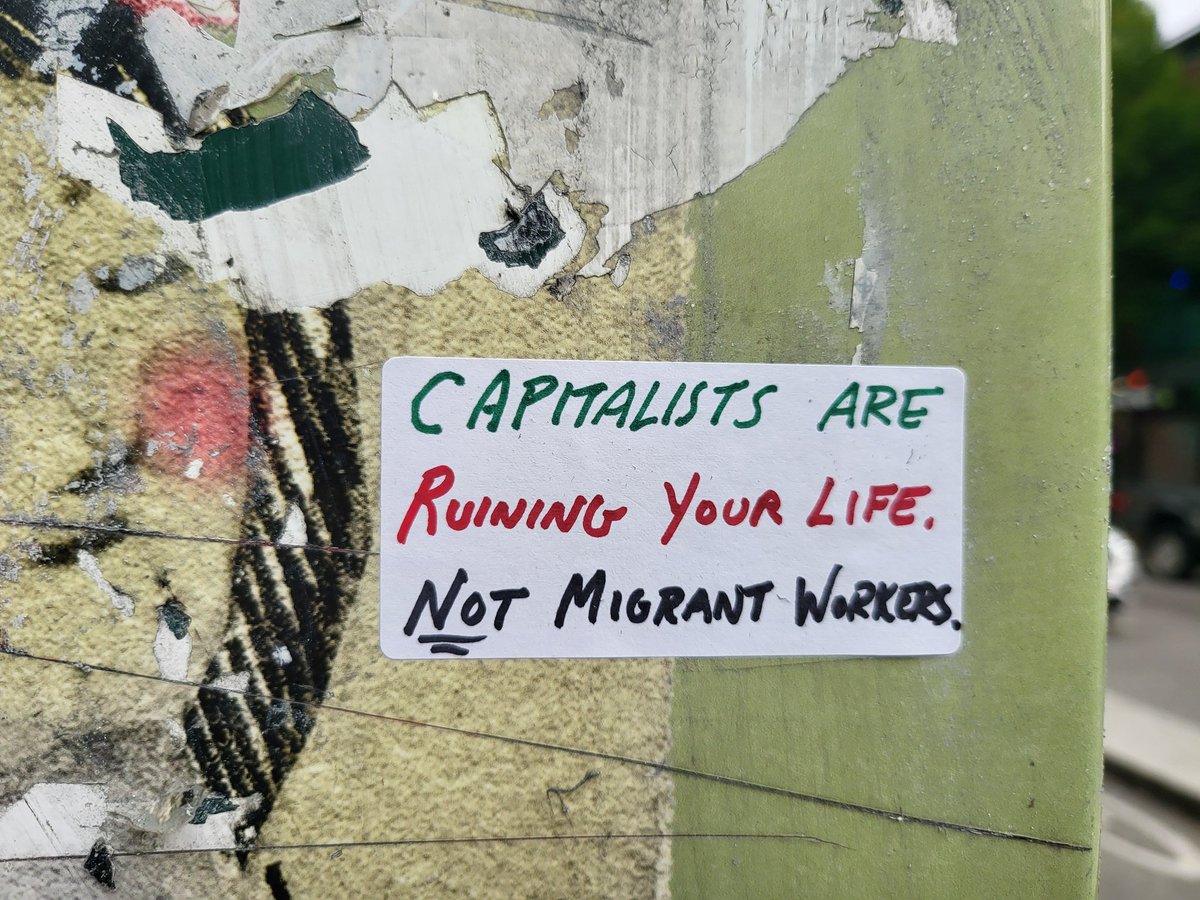 CAPITALISTS ARE
RUINING YOUR LIFE.
NOT MIGRANT WORKERS.